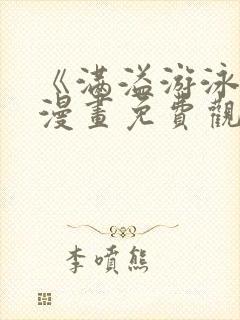 《滿溢游泳
漫畫免費觀
李噴熊